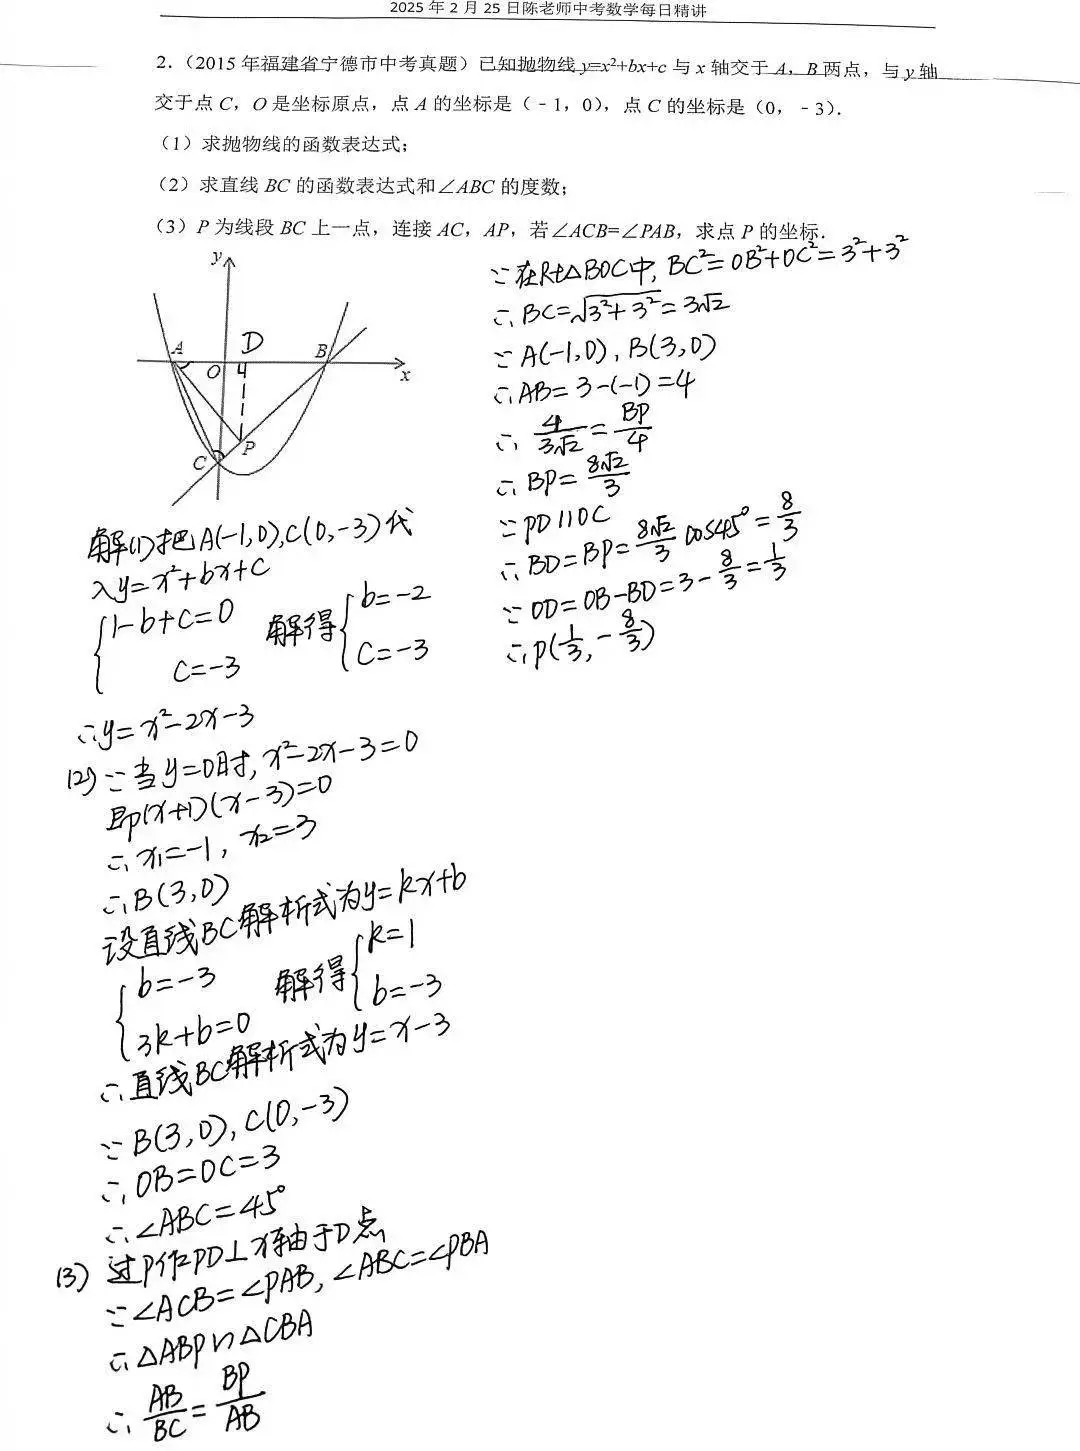 2025 年 2 月 25 日陈老师中考数学每日精讲
2.（2015 年福建省宁德市中考真题）已知抛物线 y=x²+bx+c 与 x 轴交于 A，B 两点，与 y 轴
交于点 C，O 是坐标原点，点 A 的坐标是（﹣1，0），点 C 的坐标是（0，﹣3）．
（1）求抛物线的函数表达式；
（2）求直线 BC 的函数表达式和∠ABC 的度数；
（3）P 为线段 BC 上一点，连接 AC，AP，若∠ACB=∠PAB，求点 P 的坐标．
y
A
D
B
O
x
P
C
解(1)把A(-1,0),C(0,-3)代
入y=x²+bx+c
{1-b+c=0 c=-3 解得 {b=-2 c=-3
∴y=x²-2x-3
(2)∵当y=0时,x²-2x-3=0
即(x+1)(x-3)=0
∴x₁=-1,x₂=3
∴B(3,0)
设直线BC解析式为y=kx+b
{b=-3 3k+b=0 解得 {k=1 b=-3
∴直线BC解析式为y=x-3
∵B(3,0),C(0,-3)
∴OB=OC=3
∴∠ABC=45°
(3)过P作PD⊥x轴于D点
∵∠ACB=∠PAB,∠ABC=∠PBA
∴△ABP∽△CBA
∴AB/BC=BP/AB
∵在Rt△BOC中,BC²=OB²+OC²=3²+3²
∴BC=√(3²+3²)=3√2
∵A(-1,0),B(3,0)
∴AB=3-(-1)=4
∴4/3√2=BP/4
∴BP=8√2/3
∵PD∥OC
∴BD=BP=8√2/3 cos45°=8/3
∵OD=OB-BD=3-8/3=1/3
∴P(1/3,-8/3)